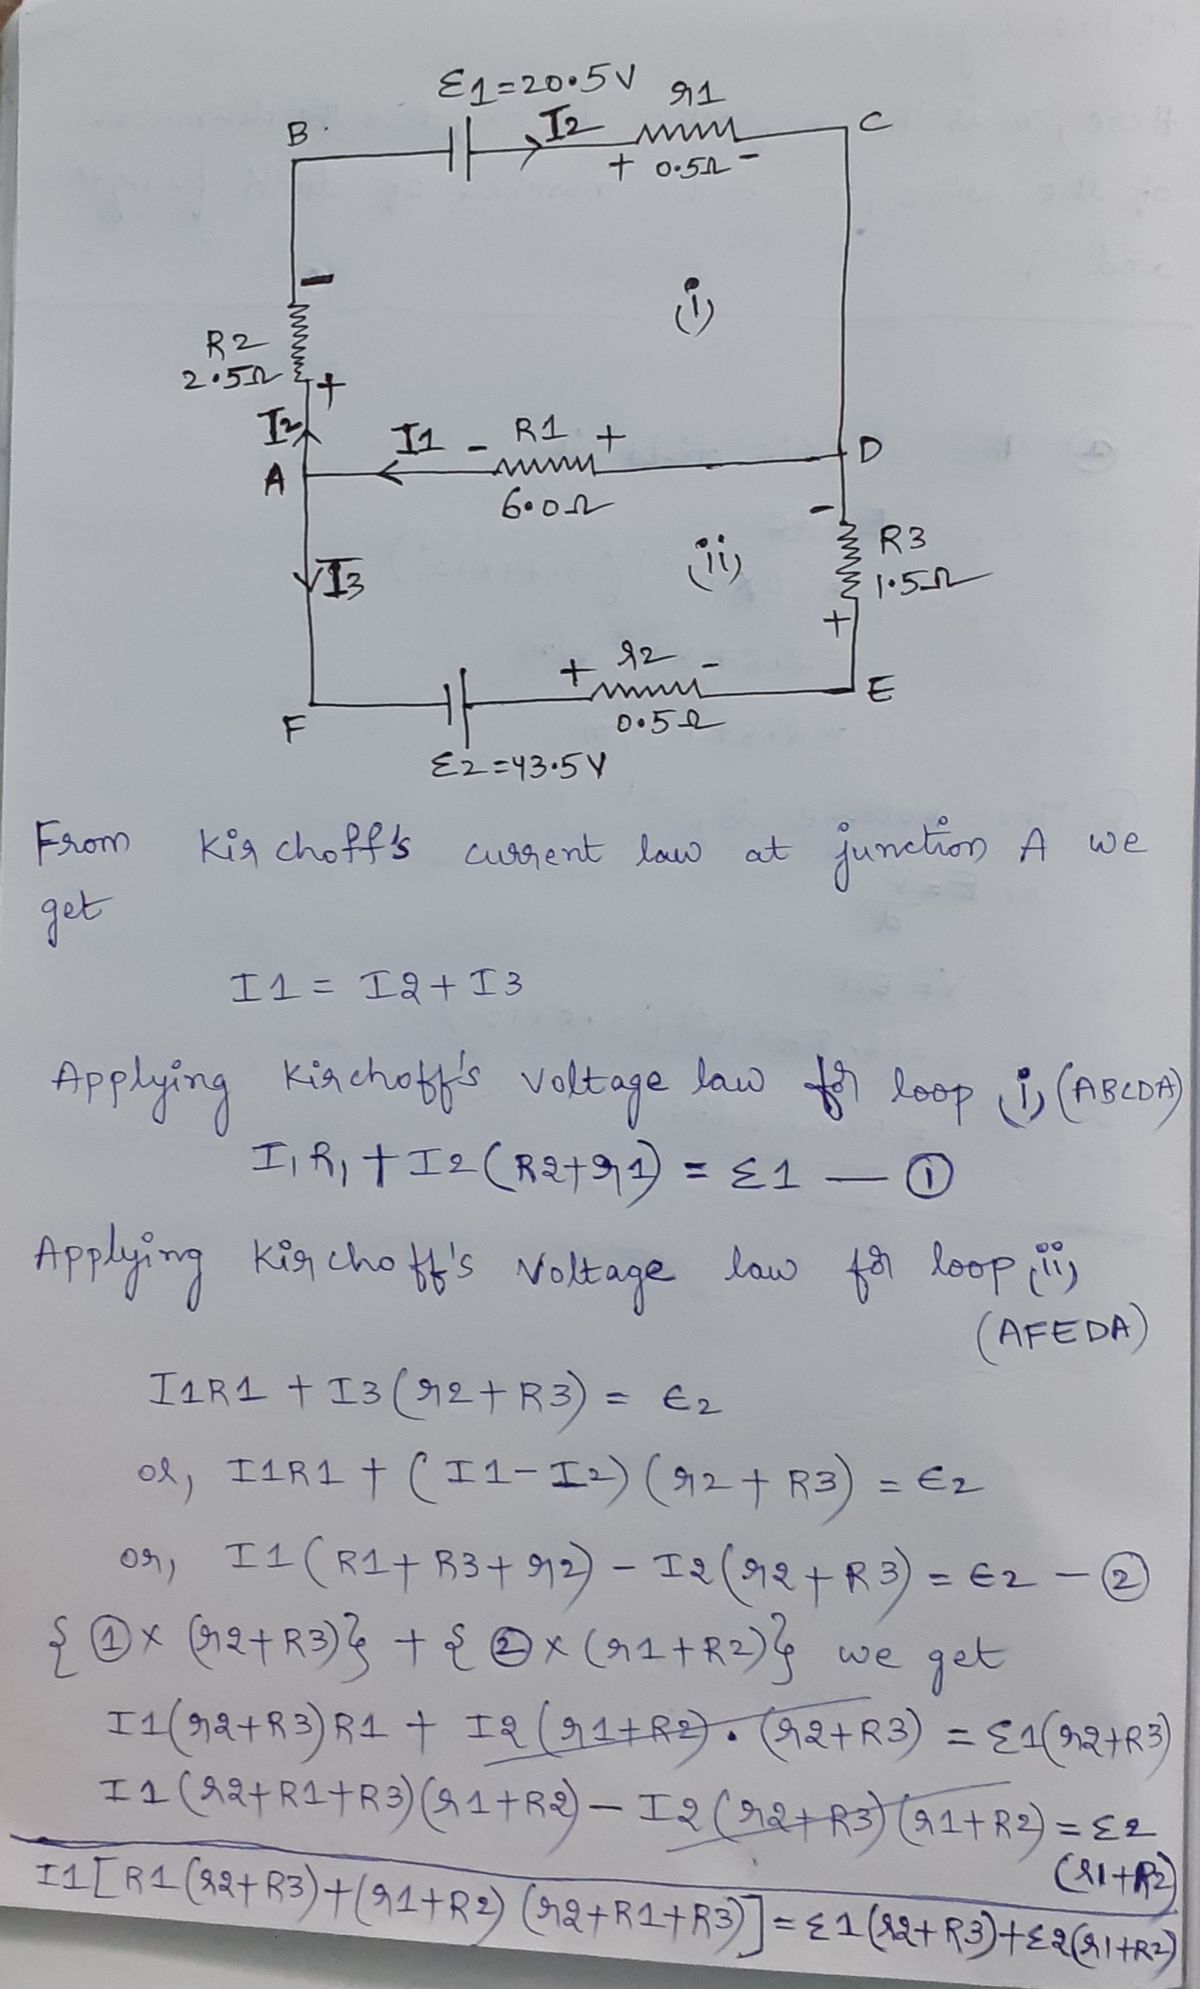 ε1=20.5V
r1
B
I2
C
+ 0.5Ω -
(i)
R2
2.5Ω
+
I2
I1 - R1 +
D
A
6.0Ω
-
R3
1.5Ω
(ii)
I3
+
+ r2 -
E
F
0.5Ω
ε2=43.5V
From Kirchoff's current law at junction A we
get
I1 = I2 + I3
Applying Kirchoff's voltage law for loop (i) (ABCDA)
I1R1 + I2(R2+r1) = ε1 — ①
Applying Kirchoff's Voltage law for loop (ii)
(AFEDA)
I1R1 + I3(r2+R3) = ε2
or, I1R1 + (I1-I2)(r2+R3) = ε2
or, I1(R1+R3+r2) - I2(r2+R3) = ε2 — ②
{①×(r2+R3)} + {②×(r1+R2)} we get
I1(r2+R3)R1 + I2(r1+R2).(r2+R3) = ε1(r2+R3)
I1(r2+R1+R3)(r1+R2) - I2(r2+R3)(r1+R2) = ε2
(r1+R2)
I1[R1(r2+R3)+(r1+R2)(r2+R1+R3)] = ε1(r2+R3)+ε2(r1+R2)